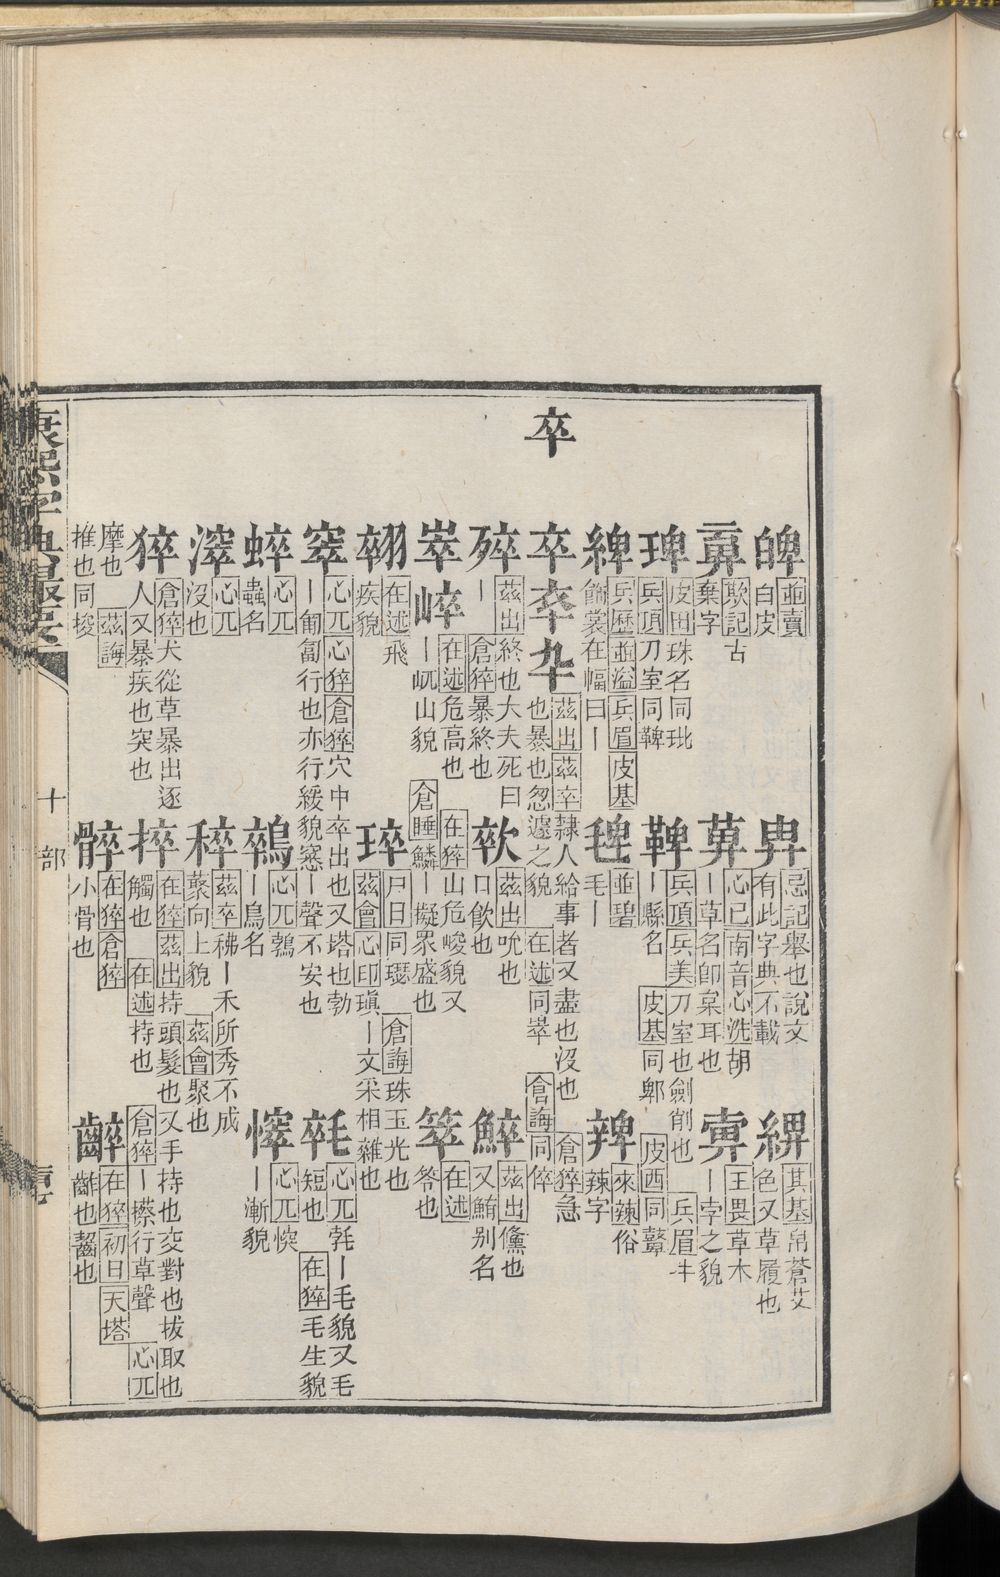 卒
竝賣白皮 忌記舉也說文有此字典不載 其基帛蒼艾色又草履也
欺記古棄字 心已南音心洗胡―草名卽枲耳也 王畏草木―孛之貌
琕 皮田珠名同玭 兵頂刀室同鞞 鞞 兵頂兵美刀室也劍削也 兵眉牛―縣名 皮基同郫 皮西同鼙
綼 兵歷竝溢兵眉皮基飾裳在幅曰― 竝碧毛― 來辣俗辣字
卒 卆 茲出茲卒隸人給事者又盡也沒也 倉猝急也暴也忽遽之貌 在述同崒 倉誨同倅
茲出終也大夫死曰― 倉猝暴終也 茲出吮也口飲也 茲出也又鮪别名
崒崪 在述危高也 在猝山危峻貌又―山貌 倉睡鱗―擬眾盛也 箤 在述笭也
在述飛疾貌 琗 尸日同璱 倉誨珠玉光也 茲會心印瑱―文采相雜也
窣 心兀心猝倉猝穴中卒出也又塔也勃―匍匐行也亦行緩貌窸―聲不安也 心兀―毛貌又毛短也 在猝毛生貌
心兀蟲名 心兀―鳥名 心兀―漸貌
心兀沒也 稡 茲卒―禾所秀不成向上貌 茲會聚也
猝 倉猝犬從草暴出逐人又暴疾也突也 捽 在猝茲出持頭髮也又手持也交對也拔取也觸也 在述持也 倉猝―行草聲 心兀
摩也 茲誨推也同捘 在猝倉猝小骨也 在猝初日天塔齚也齧也
康熙字典撮要 十部